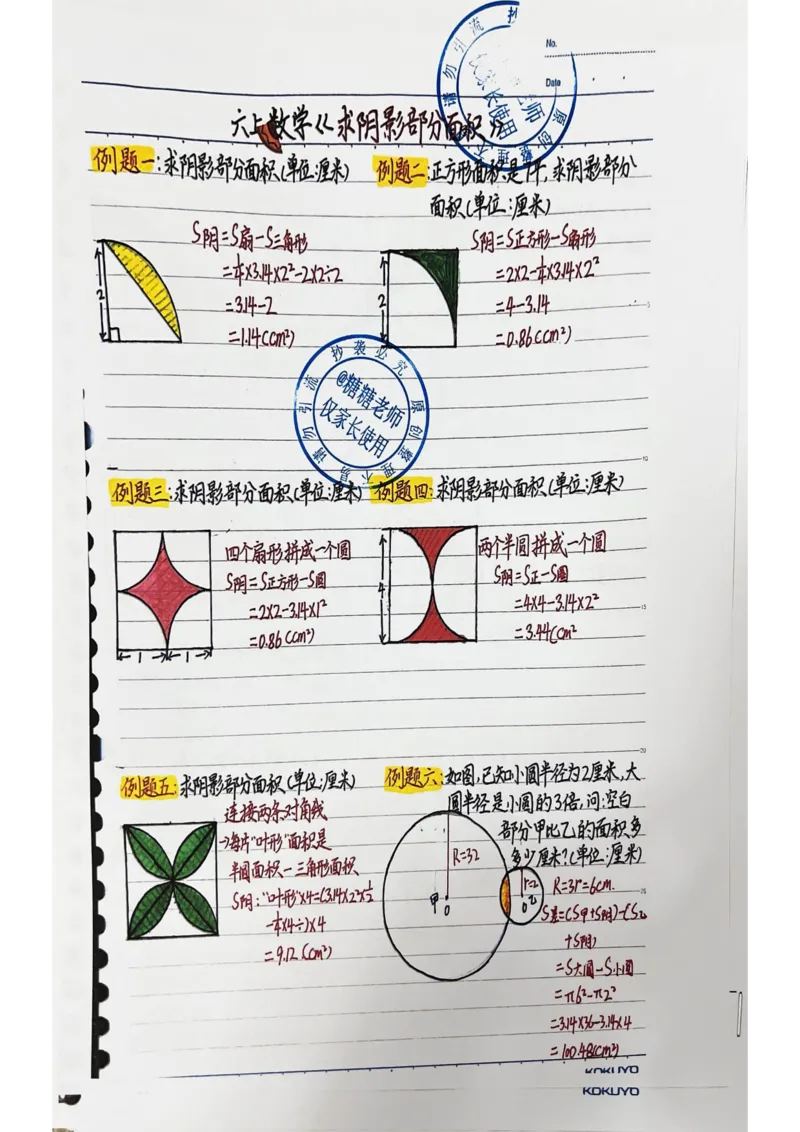 No.
Date
六上数学《求阴影部分面积》
例题一:求阴影部分面积(单位:厘米)
2
S阴=S扇-S三角形
=¼×3.14×2²-2×2÷2
=3.14-2
=1.14(cm²)
例题二:正方形面积是 求阴影部分
面积(单位:厘米)
2
S阴=S正方形-S扇形
=2×2-¼×3.14×2²
=4-3.14
=0.86(cm²)
抄袭必究 原创整理不易 请勿引流
@糖糖老师
仅家长使用
例题三:求阴影部分面积(单位:厘米)
四个扇形拼成一个圆
S阴=S正方形-S圆
=2×2-3.14×1²
=0.86(cm²)
1 1
例题四:求阴影部分面积(单位:厘米)
4
两个半圆拼成一个圆
S阴=S正-S圆
=4×4-3.14×2²
=3.44(cm²
例题五:求阴影部分面积(单位:厘米)
连接两条对角线
→每片"叶形"面积是
半圆面积-三角形面积
S阴:"叶形"×4=(3.14×2²×½
-¼×4÷)×4
=9.12(cm²)
例题六:如图,已知小圆半径为2厘米,大
圆半径是小圆的3倍,问:空白
部分甲比乙的面积多
多少厘米?(单位:厘米)
R=32
甲 O
r=2
O 乙
R=3r=6cm.
S差=(S甲+S阴)-(S乙
+S阴)
=S大圆-S小圆
=π6²-π2²
=3.14×36-3.14×4
=100.48(cm²)
KOKUYO
KOKUYO